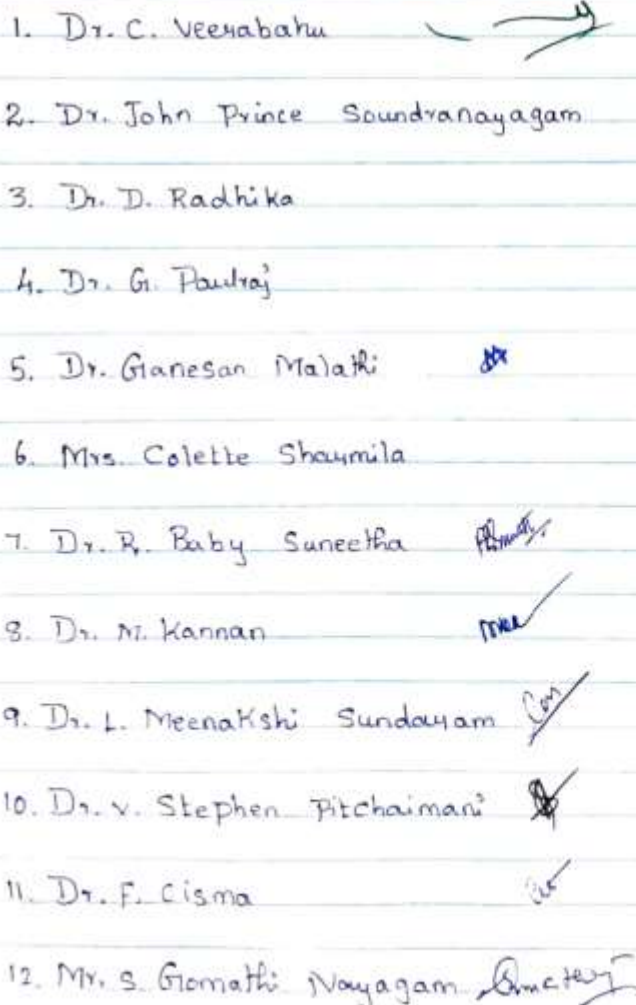 1. Dr. C. Veerabahu
2. Dr. John Prince Soundranayagam
3. Dr. D. Radhika
4. Dr. G. Paulraj
5. Dr. Ganesan Malathi
6. Mrs. Colette Sharmila
7. Dr. R. Baby Suneetha
8. Dr. M. Kannan
9. Dr. L. Meenakshi Sundaram
10. Dr. V. Stephen Pitchaimani
11. Dr. F. Cisma
12. Mr. S. Gomathi Nayagam